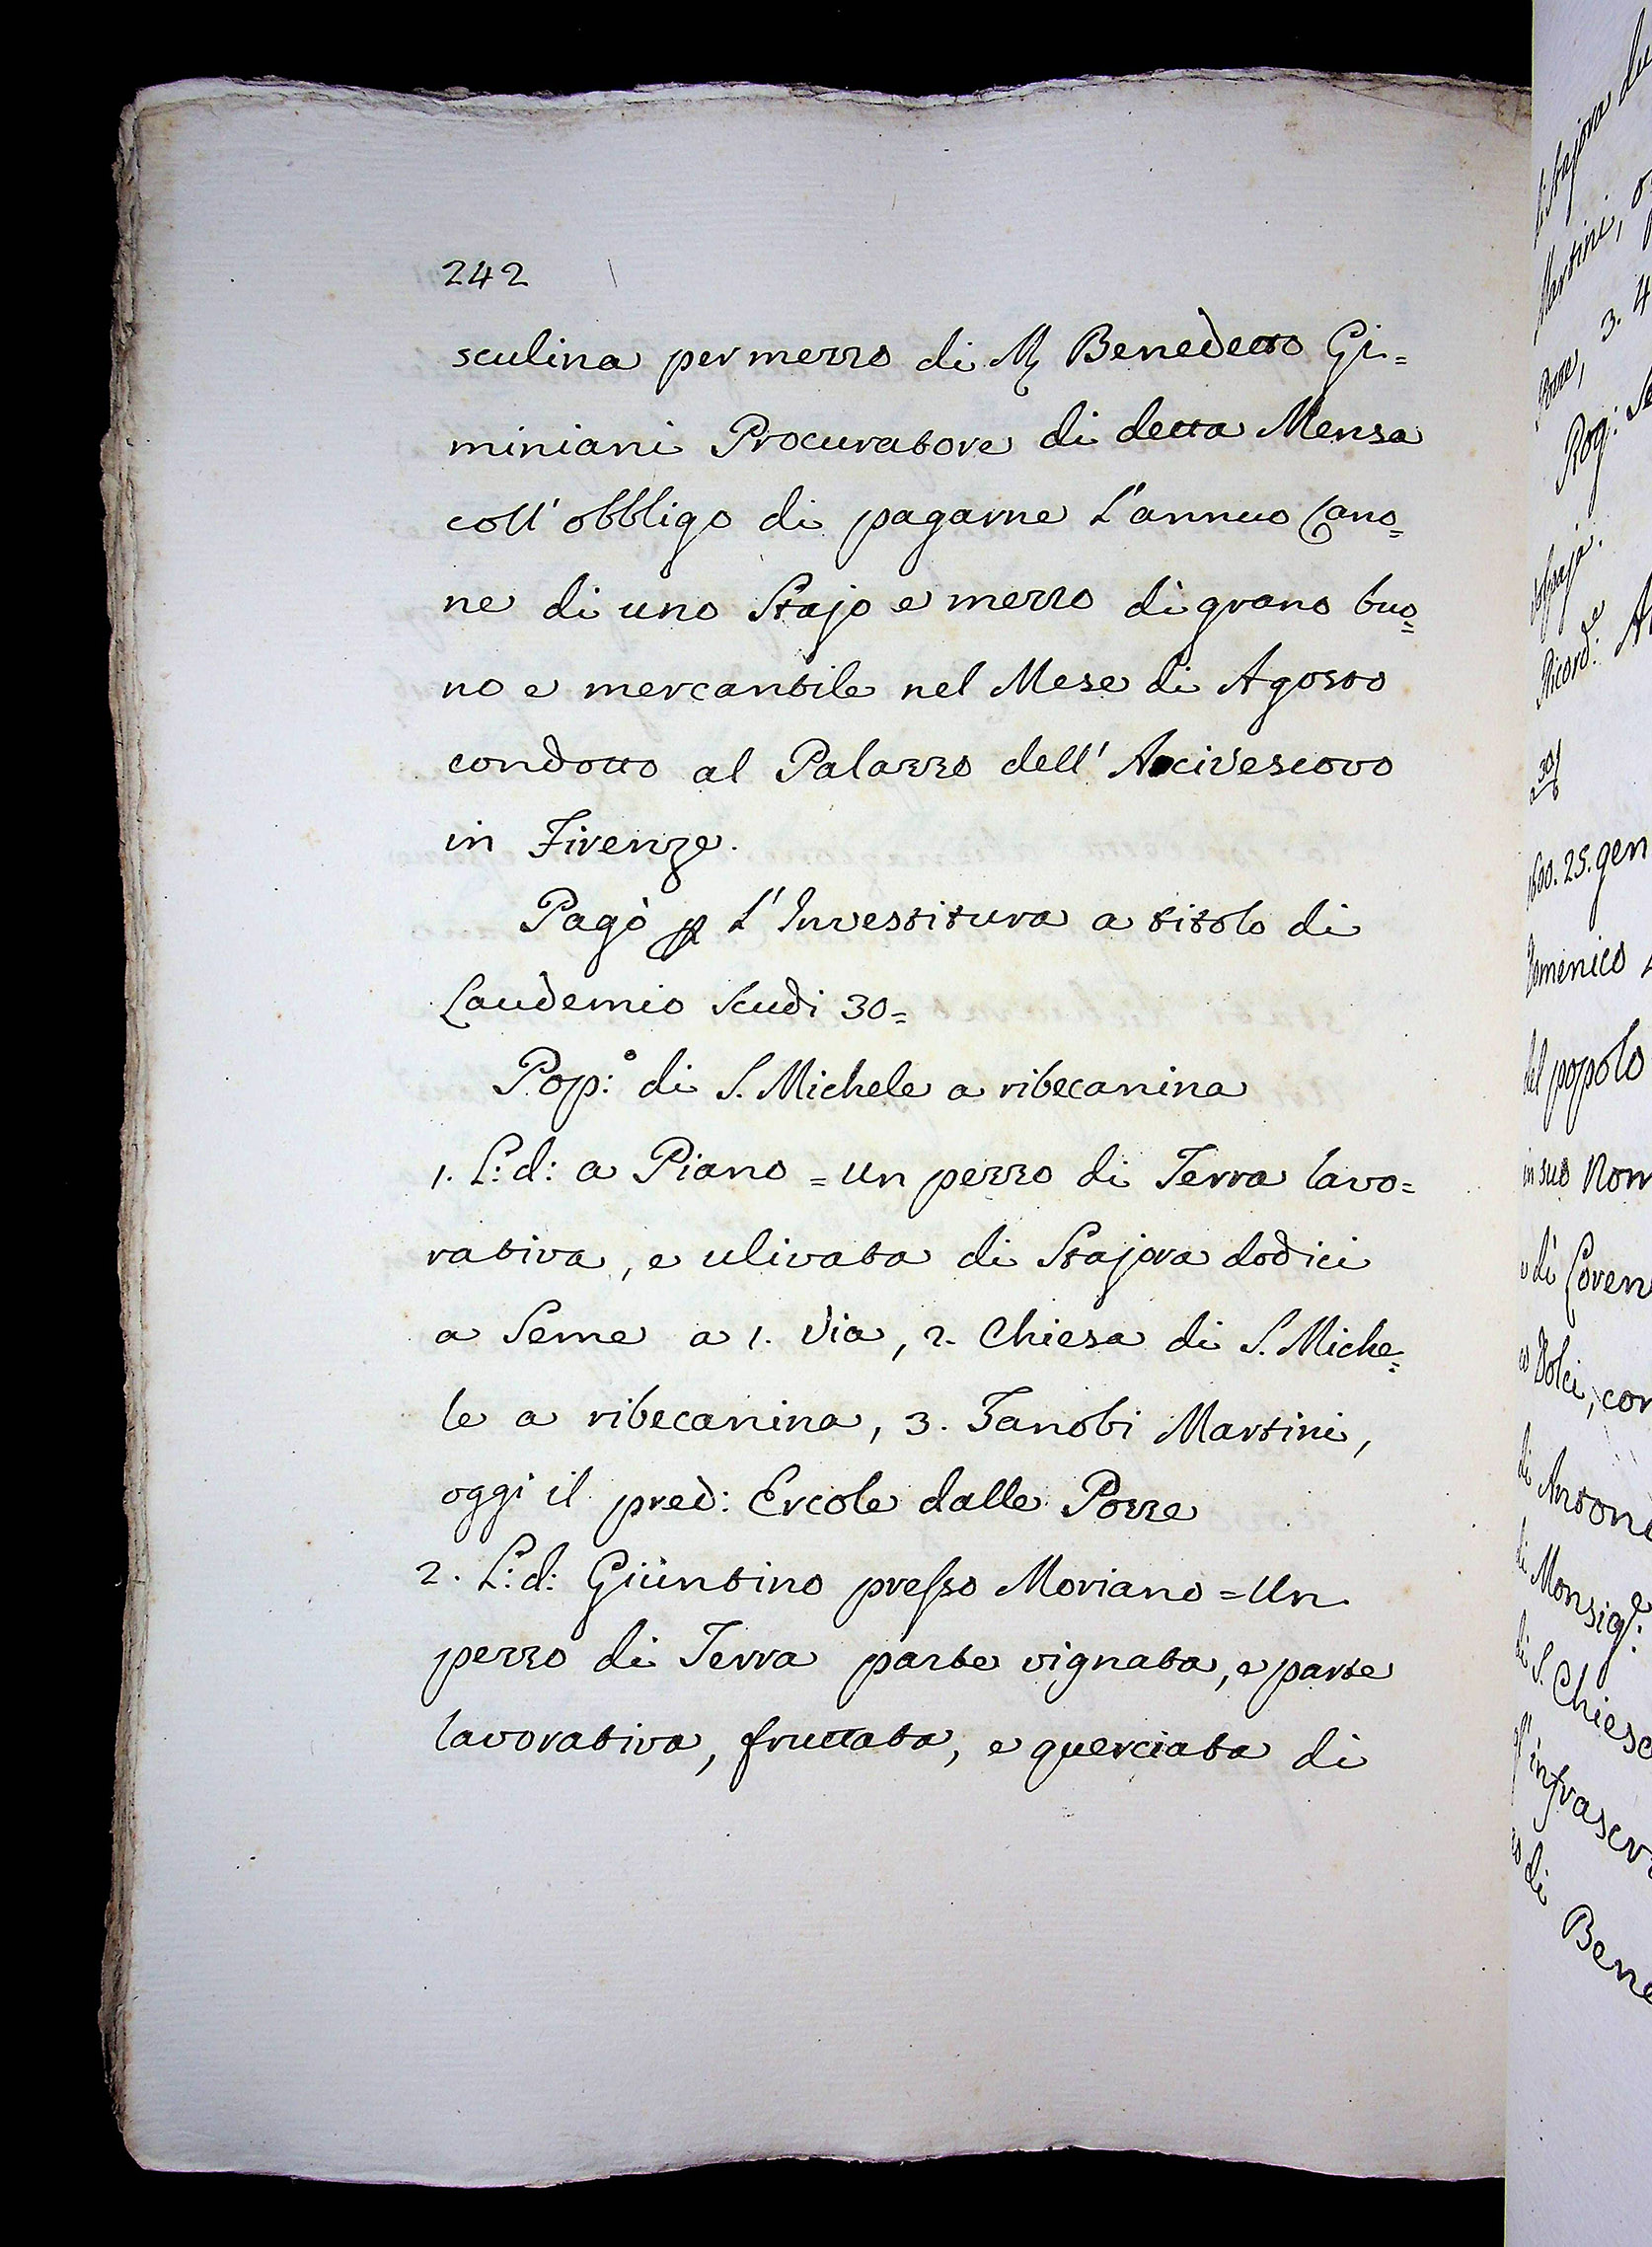 242
sculina per mezzo di M Benedetto Gi=
miniani Procuratore di detta Mensa
coll' obbligo di pagarne l'annuo Cano=
ne di uno Stajo e mezzo di grano buo=
no e mercantile nel Mese di Agosto
condotto al Palazzo dell' Arcivescovo
in Firenze.
Pagò p l'Investitura a titolo di
Laudemio Scudi 30=
Pop:° di S. Michele a ribecanina
1. L: d: a Piano = un pezzo di Terra lavo=
rativa, e ulivata di Stajora dodici
a Seme a 1. Via, 2. Chiesa di S. Miche=
le a ribecanina, 3. Zanobi Martini,
oggi il pred: Ercole dalle Pozze
2. L: d: Giuntino presso Moriano = Un
pezzo di Terra parte vignata, e parte
lavorativa, fruttata, e querciata di
Martini,
3. 4
Rog:
Ricord:e
1600. 25. gen
Domenico
del popolo
in suo Nom
di Loren
Dolci, con
di Antoni
di Monsig:e
di S. Chiesa
infrascr
di Bene